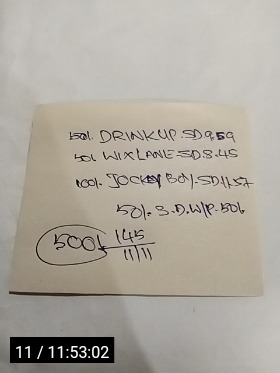 50l. DRINKUP. SD 9.59
50l WIXLANE SD 8.45
100l. JOCKEY BOY. SD 11.57
50l. S.D.W/P. 50l
500l 145
11/11
11 / 11:53:02